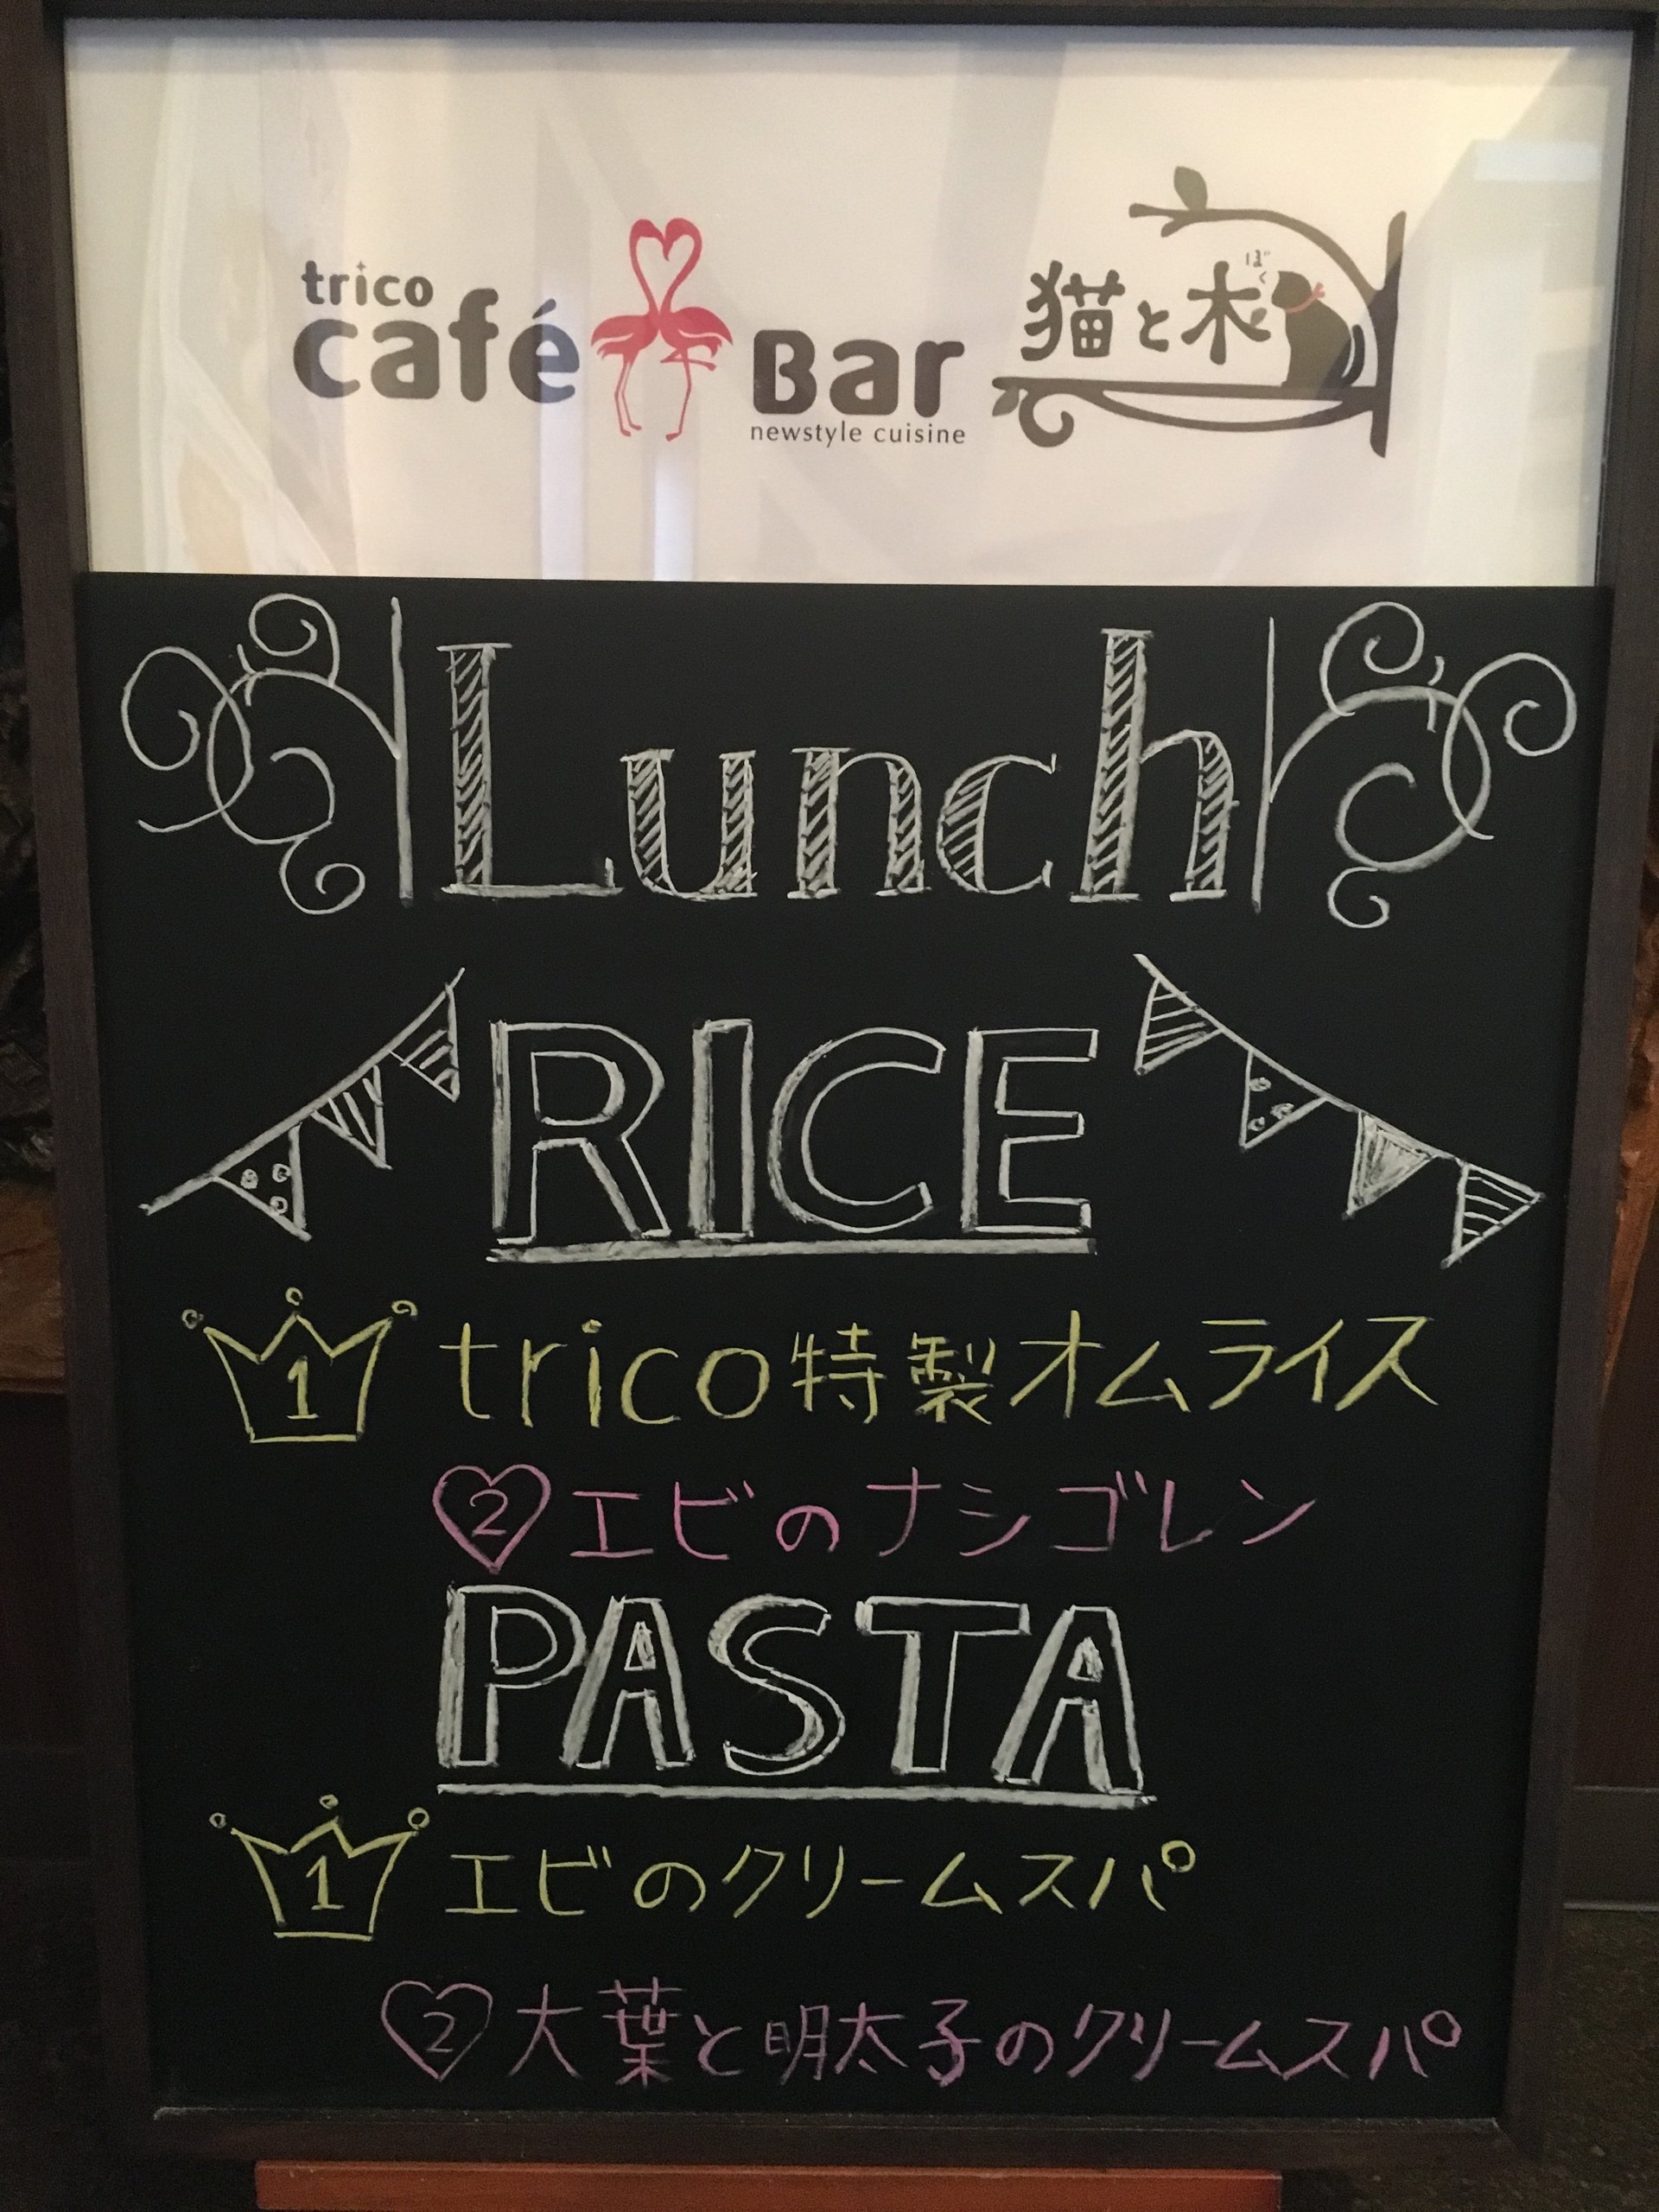 trico
café Bar
newstyle cuisine
猫と木
ぼく
Lunch
RICE
1 trico特製オムライス
2 エビのナシゴレン
PASTA
1 エビのクリームスパ
2 大葉と明太子のクリームスパ